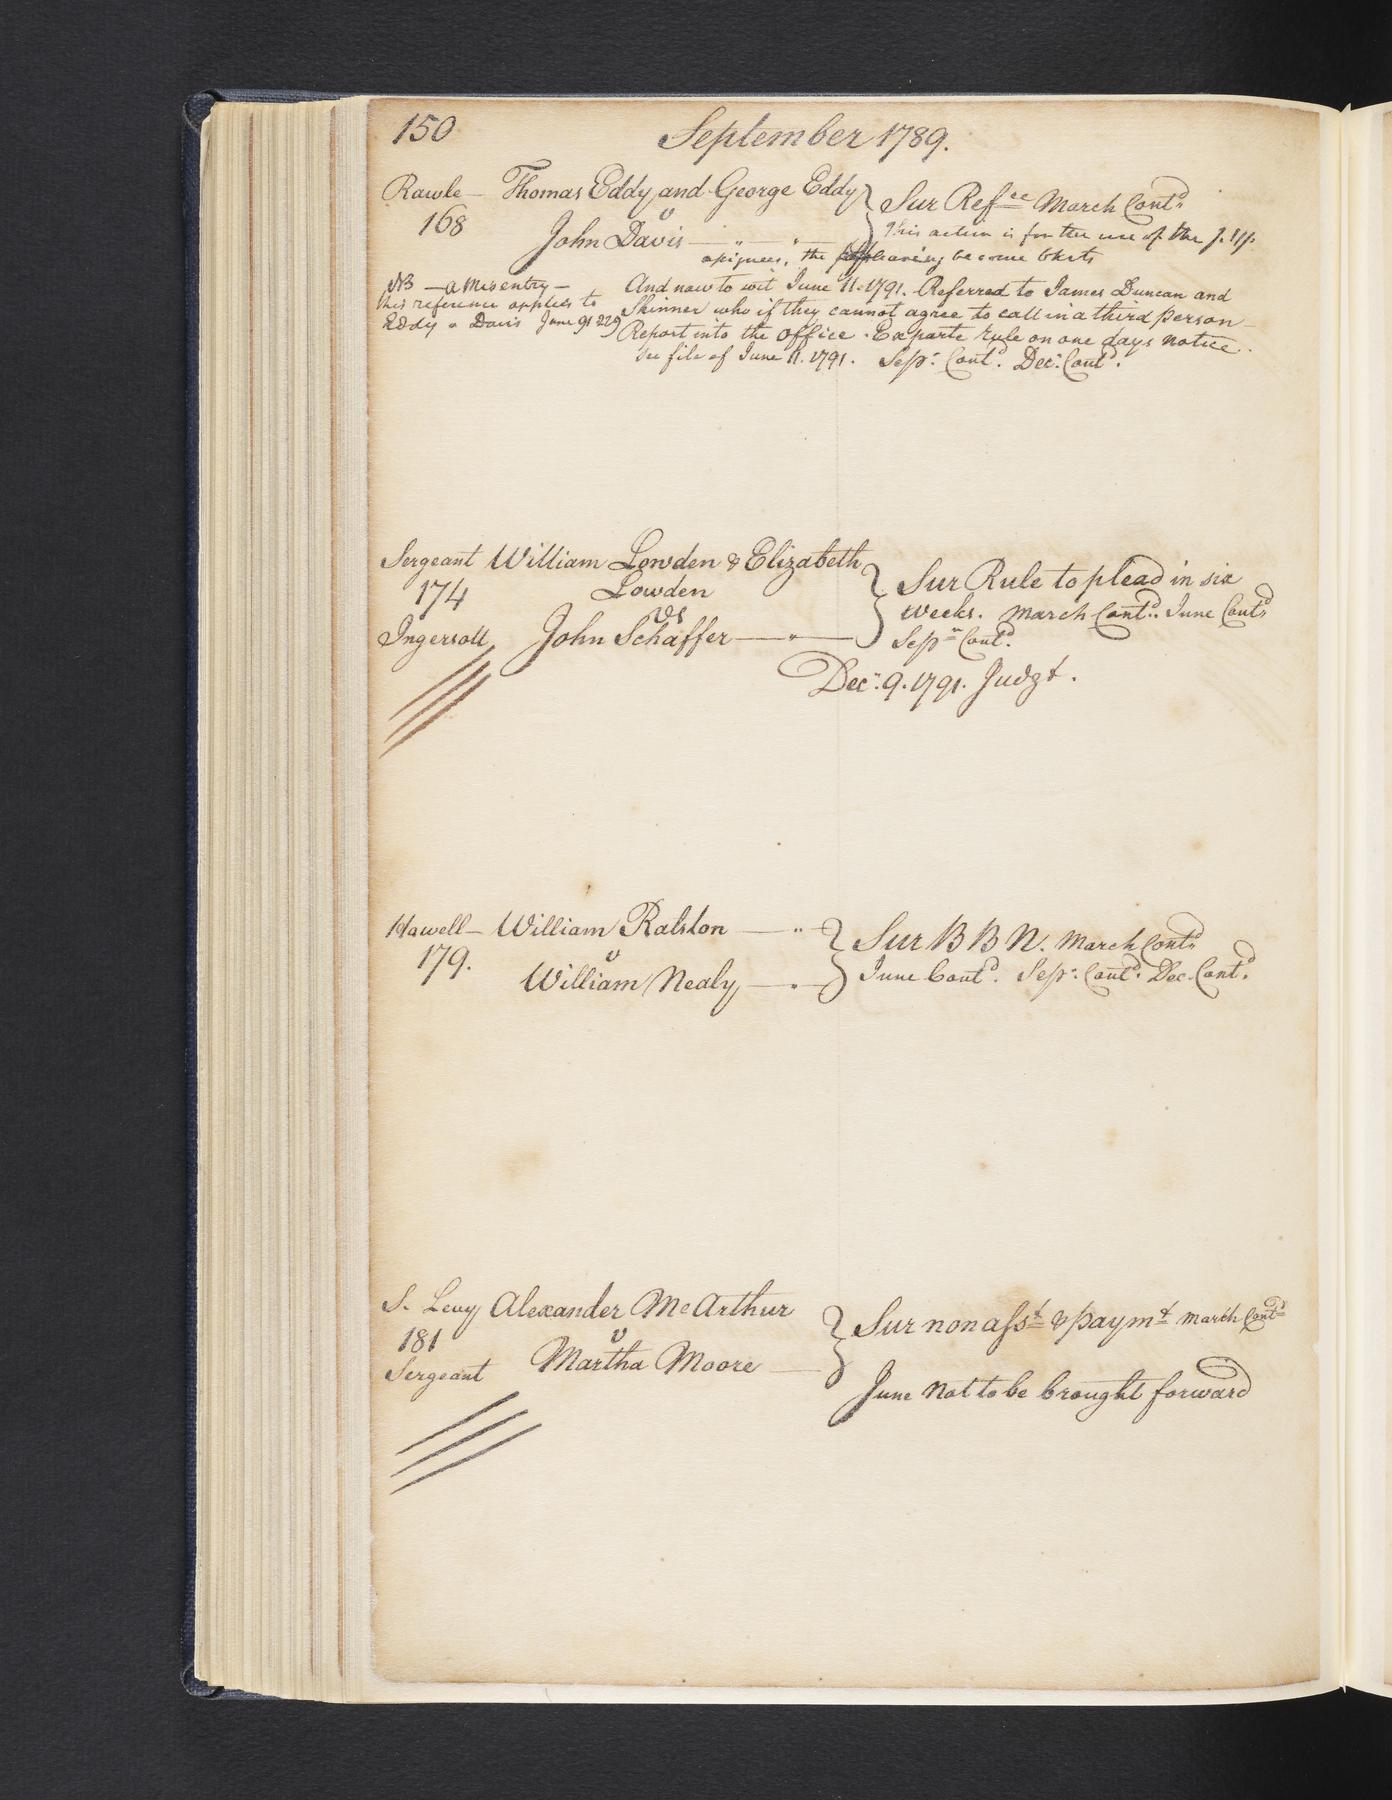 150
September 1789.
Rawle — Thomas Eddy and George Eddy } Sur Refce March Contd
168 v
John Davis — " — " — This action is for the use of the
assignees, the having become bkrts
NB — a Misentry —
this reference applies to
Eddy v Davis June 91 229
And now to wit June 11. 1791. Referred to James Duncan and
Skinner who if they cannot agree to call in a third person —
Report into the office. Exparte rule on one days notice.
See file of June 11. 1791. Sepr. Contd. Decr. Contd.
Sergeant William Lowden & Elizabeth } Sur Rule to plead in six
174 Lowden
vs
weeks. March Contd. June Contd
Ingersoll John Schaffer — " — Sepr Contd.
Decr. 9. 1791. Judgt.
Howell — William Ralston — " — } Sur B B N. March Contd
179. v
William Nealy — " — June Contd. Sepr. Contd. Dec. Contd.
S. Levy Alexander McArthur } Sur non asst & paymt March Contd
181 v
Sergeant Martha Moore —
June Not to be brought forward